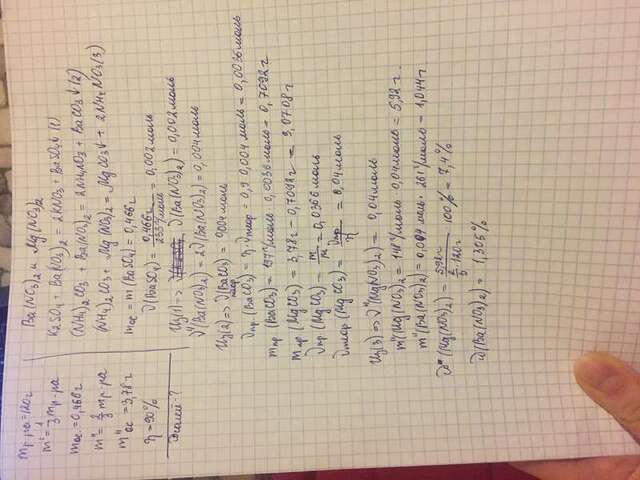 mр-ра=120г
m' = 1/3 mр-ра
mос = 0,466г
m'' = 2/3 mр-ра
m''ос = 3,78г
η = 90%
ωсолей-?
Ba(NO3)2 и Mg(NO3)2
K2SO4 + Ba(NO3)2 = 2KNO3 + BaSO4↓ (1)
(NH4)2CO3 + Ba(NO3)2 = 2NH4NO3 + BaCO3↓ (2)
(NH4)2CO3 + Mg(NO3)2 = MgCO3↓ + 2NH4NO3 (3)
mос = m(BaSO4) = 0,466г
ν(BaSO4) = 0,466г / 233г/моль = 0,002моль
Из(1) => ν(Ba(NO3)2) = 0,002моль
ν''(Ba(NO3)2) = 2ν'(Ba(NO3)2) = 0,004моль
Из(2) => νтеор(BaCO3) = 0,004 моль
νпр(BaCO3) = η·νтеор = 0,9·0,004моль = 0,0036моль
mпр(BaCO3) = 197г/моль·0,0036моль = 0,7092г
mпр(MgCO3) = 3,78г - 0,7092г = 3,0708г
νпр(MgCO3) = m/M = 0,0366моль
νтеор(MgCO3) = νпр/η = 0,04моль
Из(3) => ν''(Mg(NO3)2) = 0,04моль
m''(Mg(NO3)2) = 148г/моль·0,04моль = 5,92г.
m''(Ba(NO3)2) = 0,004моль·261г/моль = 1,044г
ω(Mg(NO3)2) = 5,92г / 2/3·120г · 100% = 7,4%
ω(Ba(NO3)2) = 1,305%